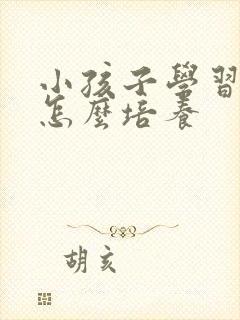 小孩子學習
怎麼培養
胡亥